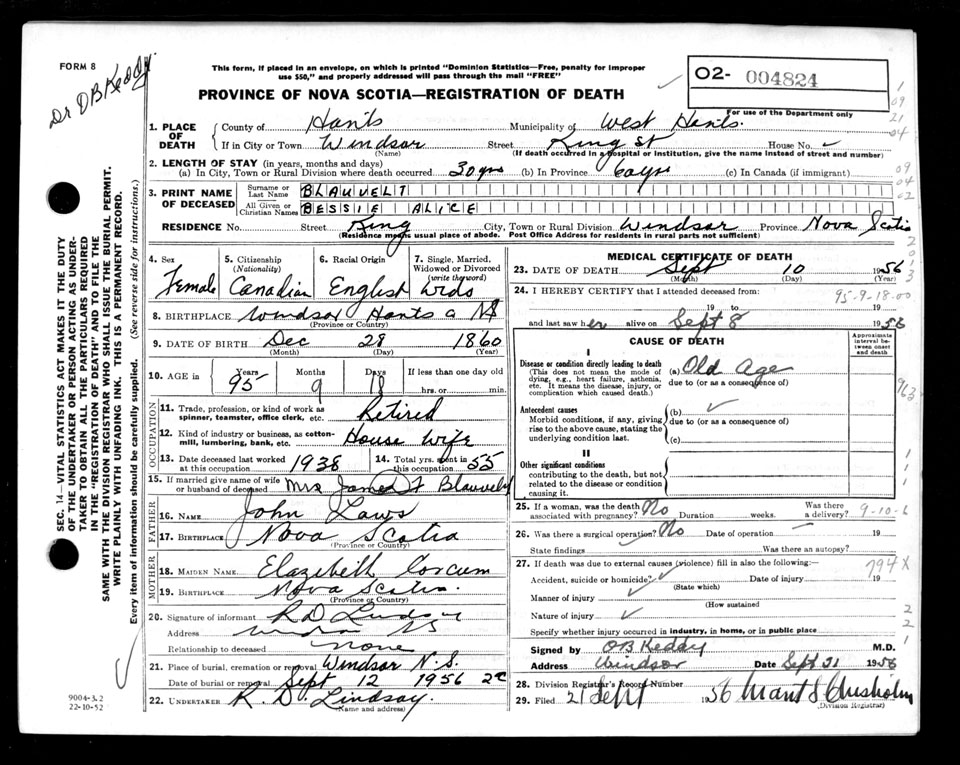 FORM 8
Dr DB Keddy
This form, if placed in an envelope, on which is printed "Dominion Statistics—Free, penalty for improper
use $50," and properly addressed will pass through the mail "FREE"
02- 004824
For use of the Department only
PROVINCE OF NOVA SCOTIA—REGISTRATION OF DEATH
1. PLACE OF DEATH
County of Hants Municipality of West Hants.
If in City or Town Windsor Street King St House No.
(Name) (If death occurred in a hospital or institution, give the name instead of street and number)
2. LENGTH OF STAY (in years, months and days)
(a) In City, Town or Rural Division where death occurred 30 yrs (b) In Province (c) In Canada (if immigrant)
3. PRINT NAME OF DECEASED
Surname or Last Name BLAUVELT
All Given or Christian Names BESSIE ALICE
RESIDENCE No. Street King City, Town or Rural Division Windsor Province Nova Scotia
(Residence means usual place of abode. Post Office Address for residents in rural parts not sufficient)
4. Sex Female
5. Citizenship (Nationality) Canadian
6. Racial Origin English
7. Single, Married, Widowed or Divorced (write the word) Wido
8. BIRTHPLACE Windsor Hants Co NS
(Province or Country)
9. DATE OF BIRTH Dec 28 1860
(Month) (Day) (Year)
10. AGE in Years 95 Months 9 Days 18 If less than one day old hrs. or min.
OCCUPATION
11. Trade, profession or kind of work as spinner, teamster, office clerk, etc. Retired
12. Kind of industry or business, as cotton-mill, lumbering, bank, etc. House Wife
13. Date deceased last worked at this occupation 1938
14. Total yrs. spent in this occupation 55
15. If married give name of wife or husband of deceased Mrs James Blauvelt
FATHER
16. NAME John Laws
17. BIRTHPLACE Nova Scotia
(Province or Country)
MOTHER
18. MAIDEN NAME Elazibeth Corcum
19. BIRTHPLACE Nova Scotia
(Province or Country)
20. Signature of informant RD Lindsay
Address Windsor NS
Relationship to deceased none
21. Place of burial, cremation or removal Windsor N.S.
Date of burial or removal Sept 12 1956
22. UNDERTAKER R. D. Lindsay.
(Name and address)
MEDICAL CERTIFICATE OF DEATH
23. DATE OF DEATH Sept 10 1956
(Month) (Day) (Year)
24. I HEREBY CERTIFY that I attended deceased from:
95-9-18.00
19 to 19
and last saw her alive on Sept 8 1956
CAUSE OF DEATH
Approximate interval between onset and death
I
Disease or condition directly leading to death
(This does not mean the mode of dying, e.g., heart failure, asthenia, etc. It means the disease, injury, or complication which caused death.)
(a) Old Age
due to (or as a consequence of)
Antecedent causes
Morbid conditions, if any, giving rise to the above cause, stating the underlying condition last.
(b)
due to (or as a consequence of)
(c)
II
Other significant conditions
contributing to the death, but not related to the disease or condition causing it.
25. If a woman, was the death associated with pregnancy? No Duration weeks. Was there a delivery?
9-10-6
26. Was there a surgical operation? No Date of operation 19
State findings Was there an autopsy?
27. If death was due to external causes (violence) fill in also the following:—
794X
Accident, suicide or homicide? Date of injury 19
(State which)
Manner of injury
(How sustained
Nature of injury
Specify whether injury occurred in industry, in home, or in public place
Signed by DB Keddy M.D.
Address Windsor Date Sept 21 1956
28. Division Registrar's Record Number
29. Filed 21 Sept 1956 Chisholm
(Division Registrar)
SEC. 14—VITAL STATISTICS ACT MAKES IT THE DUTY
OF THE UNDERTAKER OR PERSON ACTING AS UNDER-
TAKER "TO OBTAIN ALL THE PARTICULARS REQUIRED
IN THE "REGISTRATION OF DEATH" AND TO FILE THE
SAME WITH THE DIVISION REGISTRAR WHO SHALL ISSUE THE BURIAL PERMIT.
WRITE PLAINLY WITH UNFADING INK. THIS IS A PERMANENT RECORD.
Every item of information should be carefully supplied. (See reverse side for instructions.)
9004-3.2
22-10-52